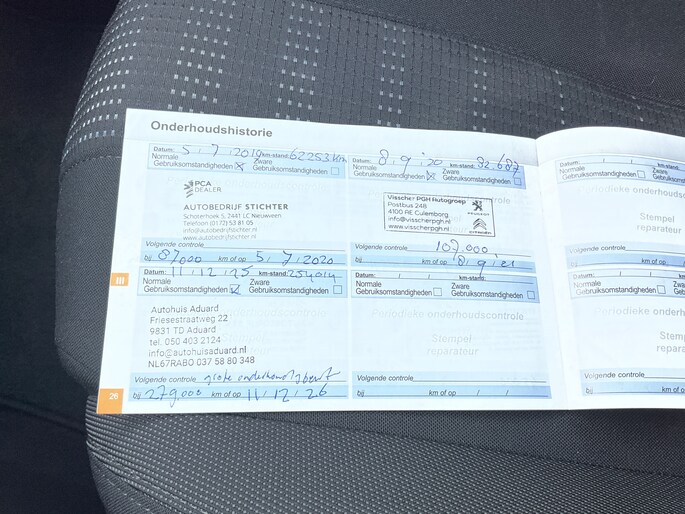 Onderhoudshistorie
Datum: 5 / 7 / 2019 km-stand: 62253 km
Normale Gebruiksomstandigheden Zware Gebruiksomstandigheden
PCA DEALER
AUTOBEDRIJF STICHTER
Schoterhoek 5, 2441 LC Nieuwveen
Telefoon (0172) 53 81 05
info@autobedrijfstichter.nl
www.autobedrijfstichter.nl
Volgende controle
bij 87000 km of op 5 / 7 / 2020
Datum: 8 / 9 / 20 km-stand: 92.687
Normale Gebruiksomstandigheden Zware Gebruiksomstandigheden
Visscher PGH Autogroep
Postbus 248
4100 AE Culemborg
info@visscherpgh.nl
www.visscherpgh.nl
PEUGEOT
CITROËN
Volgende controle 107.000
bij km of op 8 / 9 / 21
Datum: 11 / 12 / 25 km-stand: 254014
Normale Gebruiksomstandigheden Zware Gebruiksomstandigheden
Autohuis Aduard
Friesestraatweg 22
9831 TD Aduard
tel. 050 403 2124
info@autohuisaduard.nl
NL67RABO 037 58 80 348
Volgende controle grote onderhoudsbeurt
bij 279.000 km of op 11 / 12 / 26
Datum: / / km-stand:
Normale Gebruiksomstandigheden Zware Gebruiksomstandigheden
Periodieke onderhoudscontrole
Stempel
reparateur
Volgende controle
bij km of op / /
26
Datum: / / km-stand:
Normale Gebruiksomstandigheden Zware
Periodieke
Stempel
reparateur
Volgende controle
bij km of op
Datum: / / km-stand:
Normale Gebruiksomstandigheden Zware
Periodieke onderhoudsc
Stemp
repara
Volgende controle
bij km of op